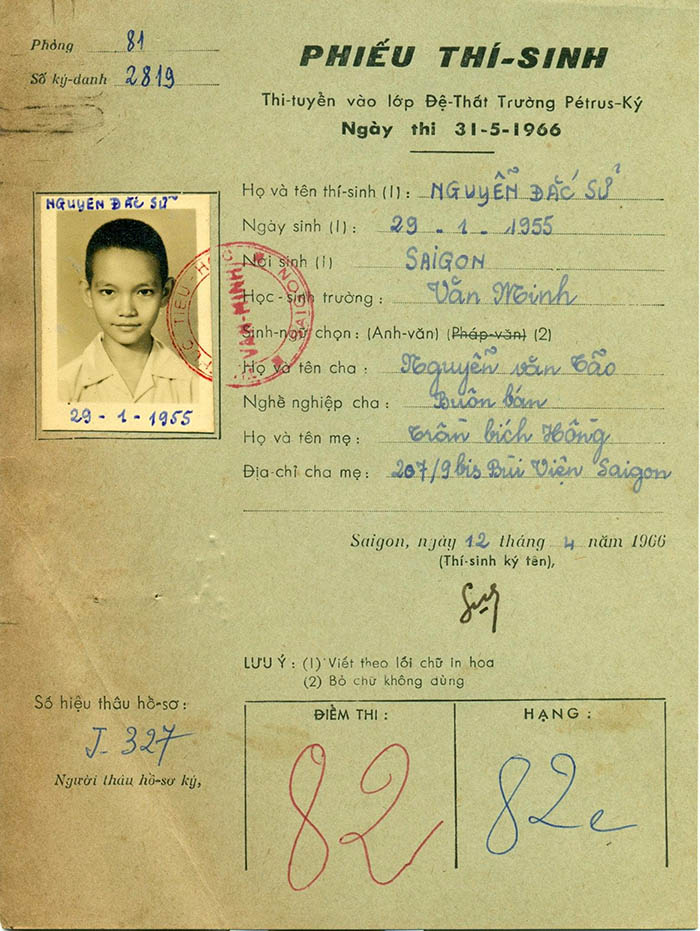 Phòng 81
Số ký-danh 2819
PHIẾU THÍ-SINH
Thi-tuyển vào lớp Đệ-Thất Trường Pétrus-Ký
Ngày thi 31-5-1966
NGUYỄN ĐẮC SỬ
29-1-1955
Họ và tên thí-sinh (1): NGUYỄN ĐẮC SỬ
Ngày sinh (1): 29 - 1 - 1955
Nơi sinh (1) SAIGON
Học-sinh trường: Văn Minh
Sinh-ngữ chọn: (Anh-văn) (Pháp-văn) (2)
Họ và tên cha: Nguyễn văn Tảo
Nghề nghiệp cha: Buôn bán
Họ và tên mẹ: Trần bích Hồng
Địa-chỉ cha mẹ: 207/9 bis Bùi Viện Saigon
VĂN-MINH
SAIGON
Saigon, ngày 12 tháng 4 năm 1966
(Thí-sinh ký tên),
LƯU Ý: (1) Viết theo lối chữ in hoa
(2) Bỏ chữ không dùng
Số hiệu thâu hồ-sơ:
J-327
Người thâu hồ-sơ ký,
ĐIỂM THI:
82
HẠNG:
82e